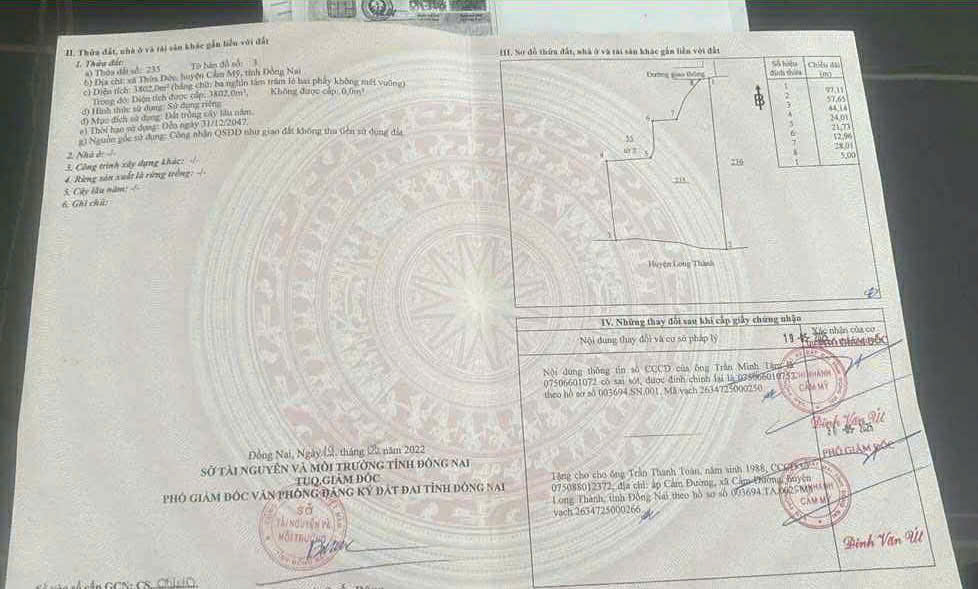 II. Thửa đất, nhà ở và tài sản khác gắn liền với đất
1. Thửa đất:
a) Thửa đất số: 235 Tờ bản đồ số: 3
b) Địa chỉ: xã Thừa Đức, huyện Cẩm Mỹ, tỉnh Đồng Nai
c) Diện tích: 3802,0m² (bằng chữ: ba nghìn tám trăm lẻ hai phẩy không mét vuông)
Trong đó: Diện tích được cấp: 3802,0m², Không được cấp: 0,0m²
d) Hình thức sử dụng: Sử dụng riêng
đ) Mục đích sử dụng: Đất trồng cây lâu năm.
e) Thời hạn sử dụng: Đến ngày 31/12/2047.
g) Nguồn gốc sử dụng: Công nhận QSDĐ như giao đất không thu tiền sử dụng đất.
2. Nhà ở: -/-
3. Công trình xây dựng khác: -/-
4. Rừng sản xuất là rừng trồng: -/-
5. Cây lâu năm: -/-
6. Ghi chú:
Đồng Nai, Ngày 19 tháng 02 năm 2022
SỞ TÀI NGUYÊN VÀ MÔI TRƯỜNG TỈNH ĐỒNG NAI
TUQ.GIÁM ĐỐC
PHÓ GIÁM ĐỐC VĂN PHÒNG ĐĂNG KÝ ĐẤT ĐAI TỈNH ĐỒNG NAI
SỞ
TÀI NGUYÊN VÀ
MÔI TRƯỜNG
Số vào sổ cấp GCN: CS
III. Sơ đồ thửa đất, nhà ở và tài sản khác gắn liền với đất
Đường giao thông
B
Số hiệu đỉnh thửa
Chiều dài (m)
1
97,11
2
57,65
3
44,14
4
24,01
5
21,73
6
12,96
7
28,01
8
5,00
1
8
1
7
6
55
tờ 2
5
4
235
236
3
2
Huyện Long Thành
IV. Những thay đổi sau khi cấp giấy chứng nhận
Nội dung thay đổi và cơ sở pháp lý
Xác nhận của cơ
PHÓ GIÁM ĐỐC
Nội dung thông tin số CCCD của ông Trần Minh Tâm là
07506601072 có sai sót, được đính chính lại là
theo hồ sơ số 003694.SN.001. Mã vạch 2634725000250
CHI NHÁNH
CẨM MỸ
Đinh Văn Út
PHÓ GIÁM ĐỐC
Tặng cho cho ông Trần Thanh Toàn, năm sinh 1988, CCCD số
075088012372, địa chỉ: ấp Cẩm Đường, xã Cẩm Đường, huyện
Long Thành, tỉnh Đồng Nai theo hồ sơ số 003694.TA.002. Mã
vạch 2634725000266
CHI NHÁNH
CẨM MỸ
Đinh Văn Út